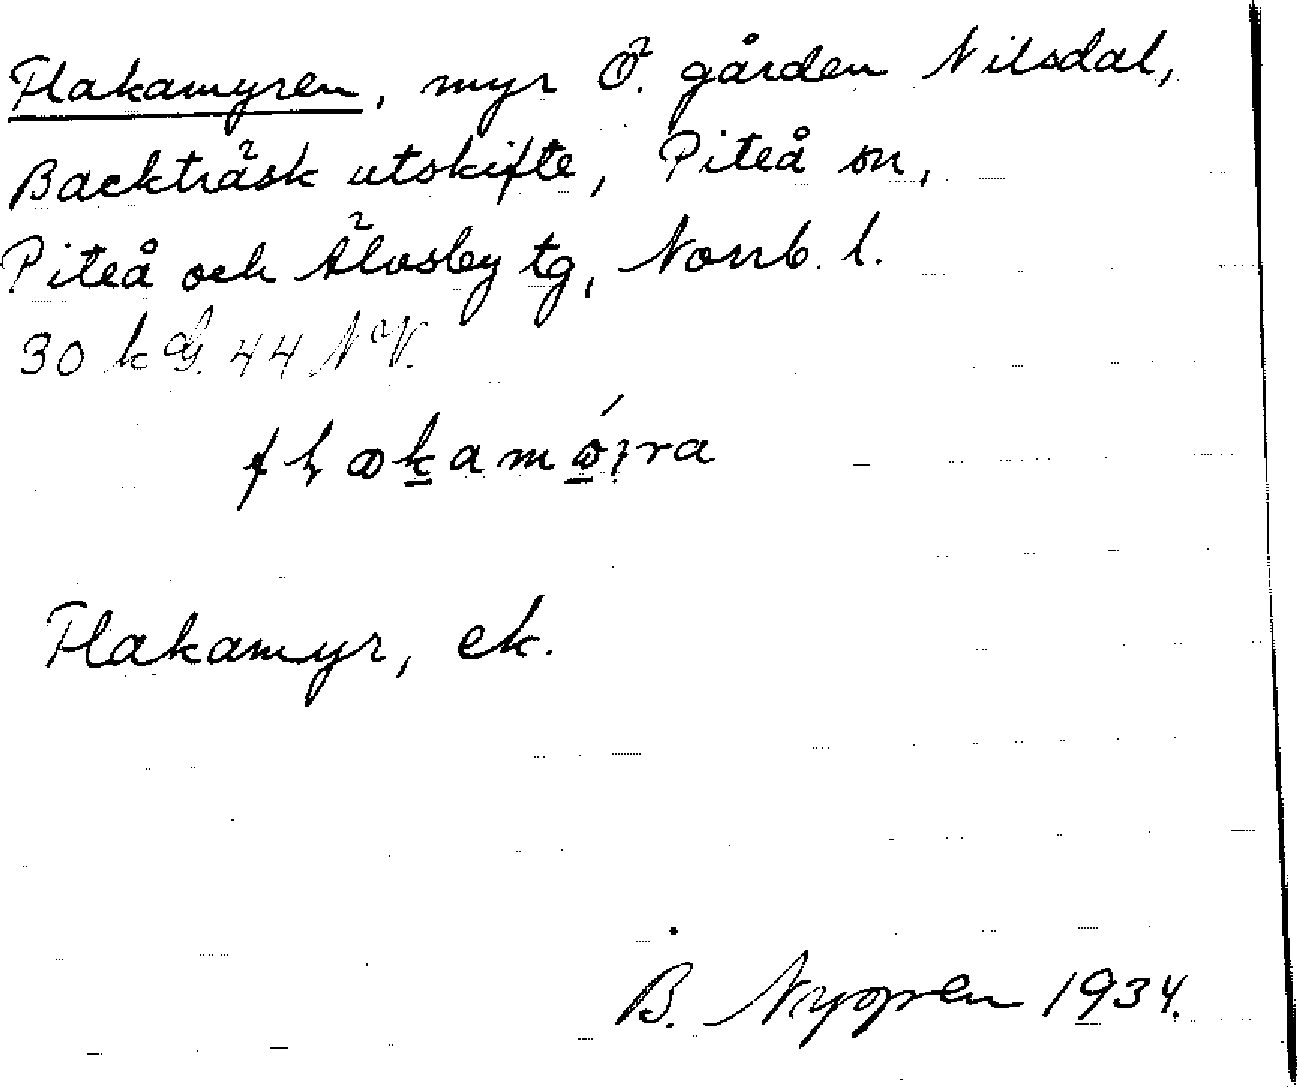 Flakamyren, myr Ö. gården Nilsdal,
Backträsk utskifte, Piteå sn,
Piteå och Älvsby tg, Norrb. l.
30 k 44 NV.
Flakamyr, ek.
B. Nygren 1934.